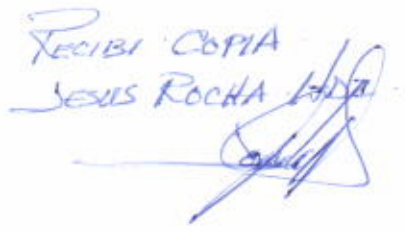 RECIBI COPIA
JESUS ROCHA